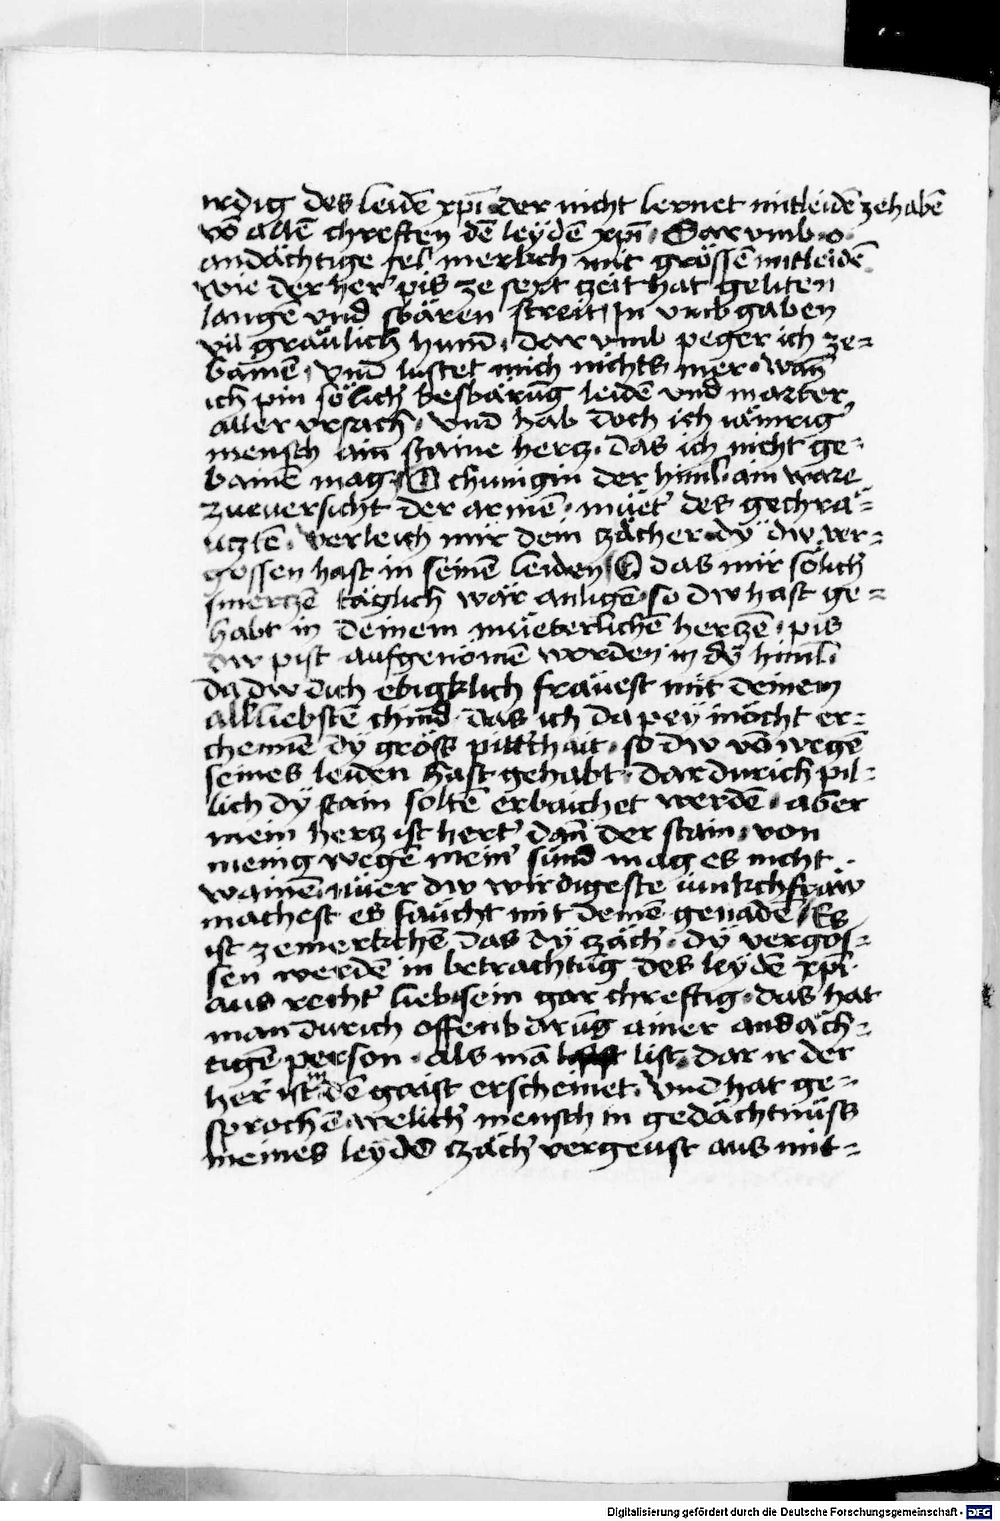 irdig des leidē xp̄i · der nicht lernet mitleidē ze habē
vō allē chrefften dē leydē xp̄i · Darumb · o ·
andächtige sel merkch mit grössē mitleidē
wie der her pis ze sext zeit hat geliten
langē vnd sbären streit / In vmbgaben
vil gräulich hund · darvmb peger ich ze=
bainē · vnd lustet mich nichts mer · wan̄
ich pin sölich' besbärūg leidē vnd marter
aller vrsach · vnd hab doch ich iämrig'
mensch ain staine hercz · das ich nicht ge=
bainē mag · O chunigin der himl · ain ware
zueversicht der armē · müet' des gechrä=
ucztē · Verleich mir dein zächer · dy dw ver=
gossen hast in seinē leiden / O das mir sölich'
smerczē täglich wär anligē · so dw hast ge=
habt in deinem müeterlichē herczē · pis
dw pist aufgenömē worden in dy himl
da dw dich ebigklich fräuest mit deinem
alliebstē chind · das ich da pey möcht er=
chennē dy gröss pitt'chait · so dw vō wegē
seines leiden hast gehabt · dardurich pil=
lich dy stain soltē erbaichet werdē · aber
mein hercz ist hert' dan̄ der stain · von
menig wegē mein' sünd mag es nicht
wainē · nüer dw wirdigeste iunkchfraw
machest es fäucht mit deinē genadē / Es
ist ze merkchē das dy zäch' · dy vergos=
sen werdē in betrachtūg des leydē xp̄i ·
aus recht' lieb · sein gar chreftig · das hat
man durich offenbarūg ainer andäch=
tigē person · als mā list · dar ir der
her ist in dē gaist erscheinet · Vnd hat ge=
sprochē · welich' mensch in gedächtnüss
meines leydē zäch' vergeust aus mit=
Digitalisierung gefördert durch die Deutsche Forschungsgemeinschaft - DFG